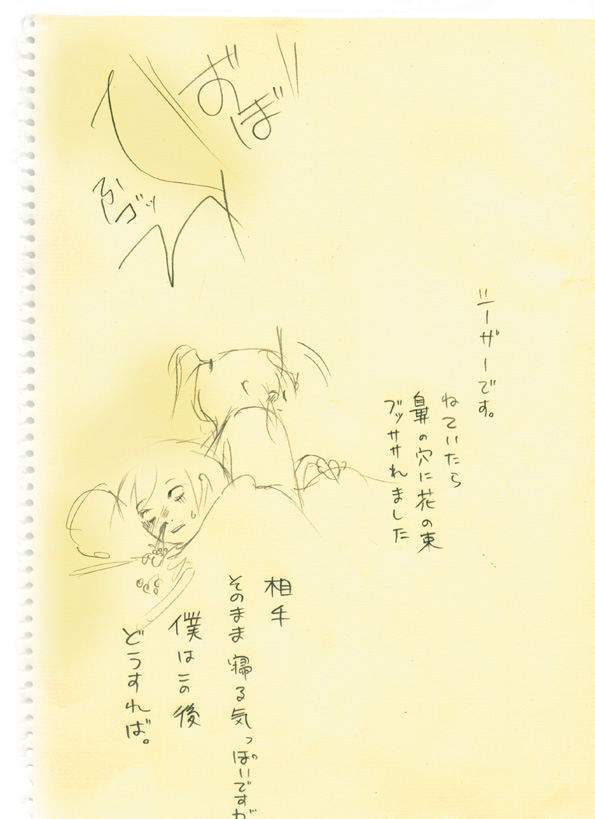 おぼ
ニーザーです。
ねていたら
鼻の穴に花の束
ブッササれました
相手
そのまま寝る気っぽいですが
僕はこの後
どうすれば。